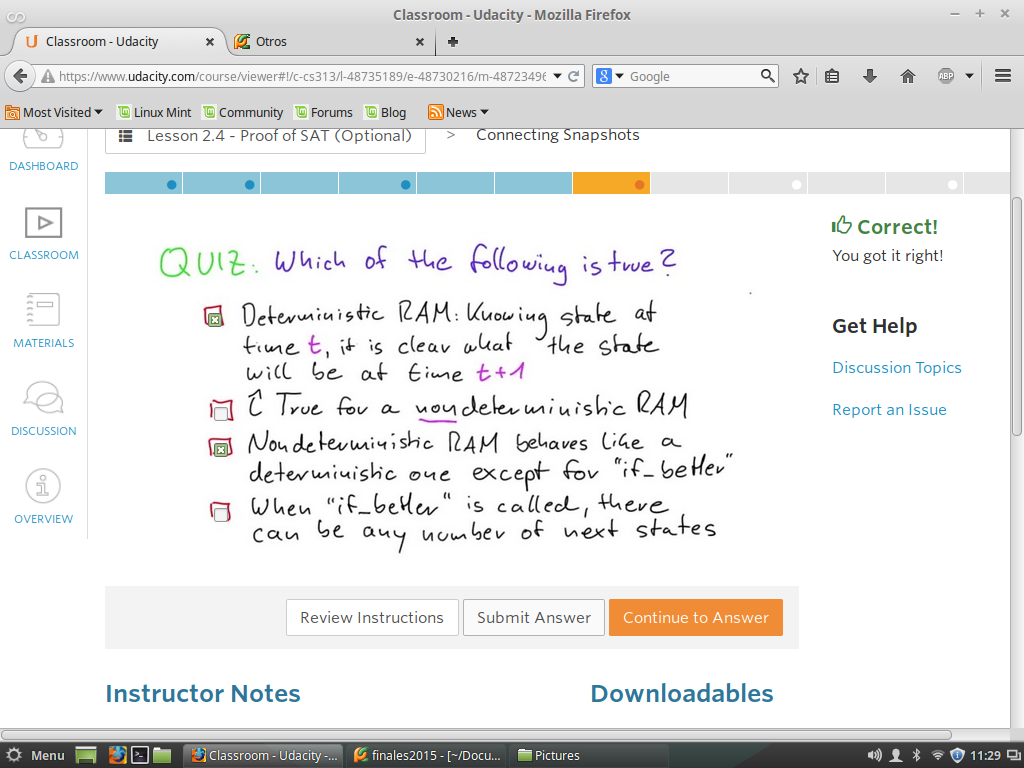 Classroom - Udacity - Mozilla Firefox
Classroom - Udacity
Otros
https://www.udacity.com/course/viewer#!/c-cs313/l-48735189/e-48730216/m-48723496
Google
ABP
Most Visited
Linux Mint
Community
Forums
Blog
News
Lesson 2.4 - Proof of SAT (Optional)
>
Connecting Snapshots
DASHBOARD
CLASSROOM
MATERIALS
DISCUSSION
OVERVIEW
QUIZ: Which of the following is true?
Deterministic RAM: Knowing state at
time t, it is clear what the state
will be at time t+1
↑ True for a nondeterministic RAM
Nondeterministic RAM behaves like a
deterministic one except for "if_better"
When "if_better" is called, there
can be any number of next states
Correct!
You got it right!
Get Help
Discussion Topics
Report an Issue
Review Instructions
Submit Answer
Continue to Answer
Instructor Notes
Downloadables
Menu
Classroom - Udacity -...
finales2015 - [~/Docu...
Pictures
11:29